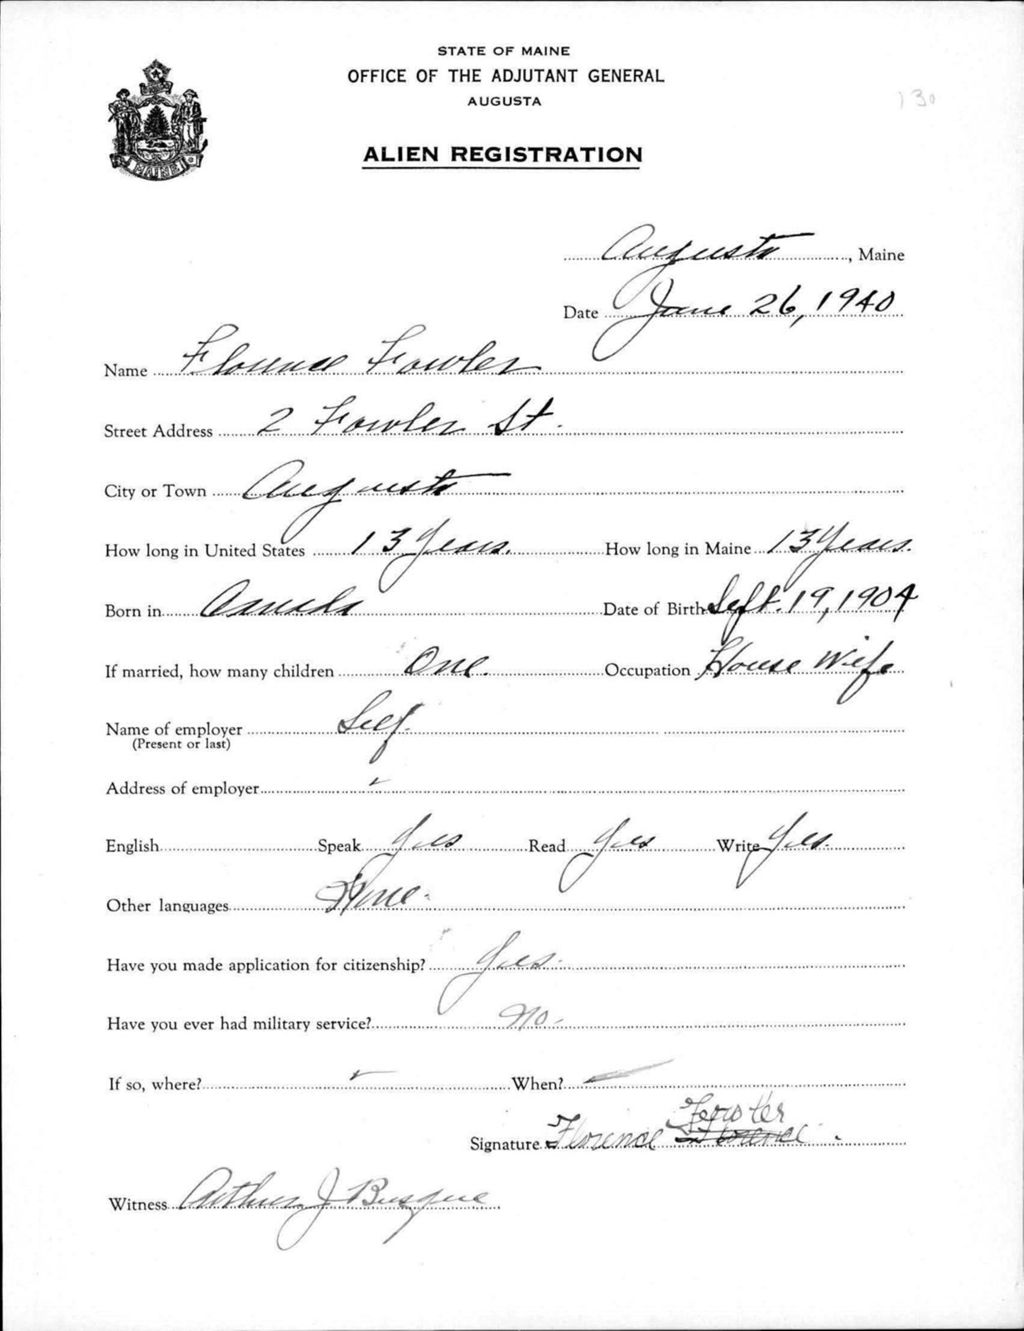 STATE OF MAINE
OFFICE OF THE ADJUTANT GENERAL
AUGUSTA
130
ALIEN REGISTRATION
Augusta, Maine
Date June 26, 1940
Name Florence Fowler
Street Address 2 Fowler St.
City or Town Augusta
How long in United States 13 Years. How long in Maine 13 Years.
Born in Canada Date of Birth Sept. 19, 1904
If married, how many children One. Occupation House Wife
Name of employer Self.
(Present or last)
Address of employer
English Speak Yes Read Yes Write Yes.
Other languages None.
Have you made application for citizenship? Yes.
Have you ever had military service? No.
If so, where? When?
Fowler
Signature Florence Florence
Witness Arthur J Busque
MAINE